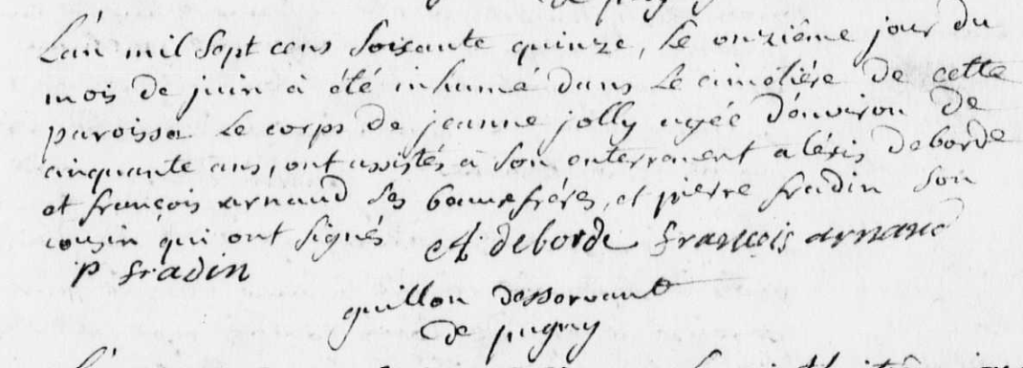 L'an mil sept cens soixante quinze, le onzième jour du
mois de juin a été inhumé dans le cimetière de cette
paroisse le corps de jeanne jolly agée d'environ de
cinquante ans, ont assistés à son enterrement alexis deborde
et françois arnaud ses beaux frères, et pierre fradin son
cousin qui ont signés A. deborde françois arnaud
p fradin
guillon desservant
de pugny